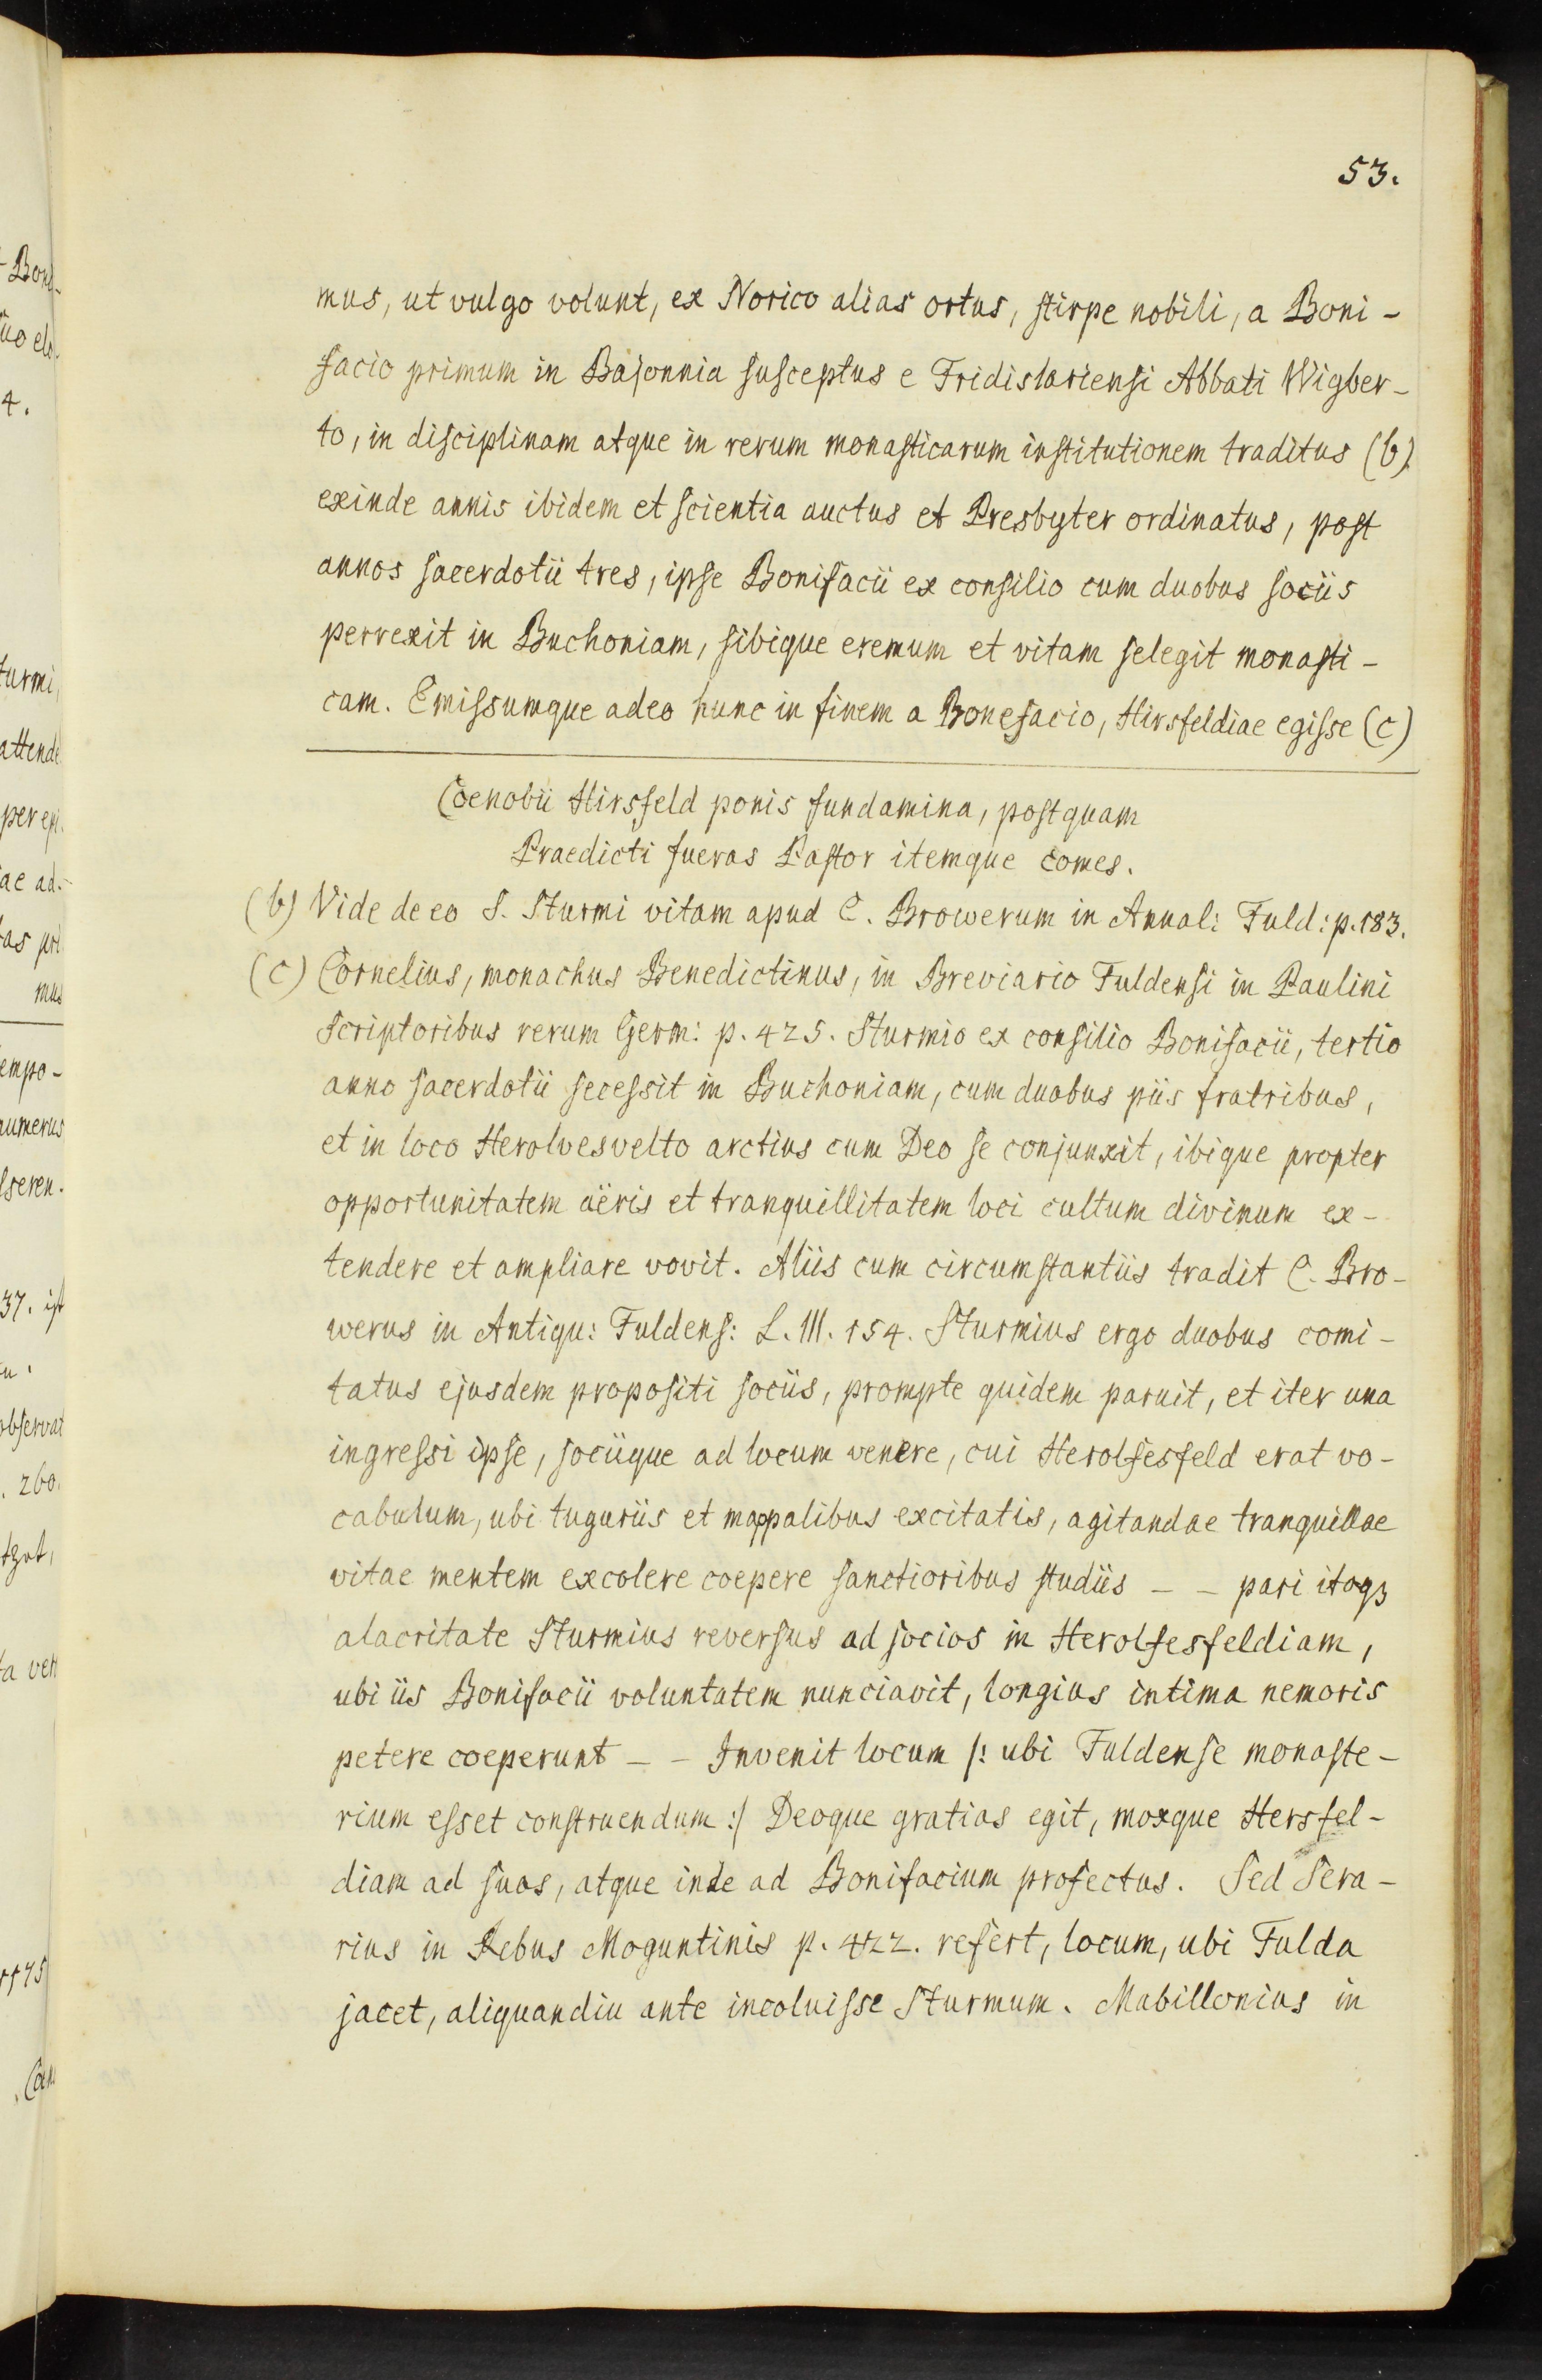 53.
mus, ut vulgo volunt, ex Norico alias ortus, stirpe nobili, a Boni-
facio primum in Bajonnia susceptus e Fridislariensi Abbati Wigber-
to, in disciplinam atque in rerum monasticarum institutionem traditus (b)
exinde annis ibidem et scientia auctus et Presbyter ordinatus, post
annos sacerdotii tres, ipse Bonifacii ex consilio cum duobus sociis
perrexit in Buchoniam, sibique eremum et vitam selegit monasti-
cam. Emissumque adeo hunc in finem a Bonefacio, Hirsfeldiae egisse (c)
Coenobii Hirsfeld ponis fundamina, postquam
Praedicti fueras Pastor itemque comes.
(b) Vide de eo S. Sturmi vitam apud C. Browerum in Annal: Fuld: p. 183.
(c) Cornelius, monachus Benedictinus, in Breviario Fuldensi in Paulini
Scriptoribus rerum Germ: p. 425. Sturmio ex consilio Bonifacii, tertio
anno sacerdotii secessit in Buchoniam, cum duobus piis fratribus,
et in loco Herolvesvelto arctius cum Deo se conjunxit, ibique propter
opportunitatem aëris et tranquillitatem loci cultum divinum ex-
tendere et ampliare vovit. Aliis cum circumstantiis tradit C. Bro-
werus in Antiqu: Fuldens: L. III. 154. Sturmius ergo duobus comi-
tatus ejusdem propositi sociis, prompte quidem paruit, et iter una
ingressi ipse, sociique ad locum venere, cui Herolfesfeld erat vo-
cabulum, ubi tuguriis et mappalibus excitatis, agitandae tranquillae
vitae mentem excolere coepere sanctioribus studiis – – pari itaq3
alacritate Sturmius reversus ad socios in Herolfesfeldiam,
ubi iis Bonifacii voluntatem nunciavit, longius intima nemoris
petere coeperunt – – Invenit locum /: ubi Fuldense monaste-
rium esset construendum :/ Deoque gratias egit, moxque Hersfel-
diam ad suos, atque inde ad Bonifacium profectus. Sed Sera-
rius in Rebus Moguntinis p. 422. refert, locum, ubi Fulda
jacet, aliquandiu ante incoluisse Sturmum. Mabillonius in